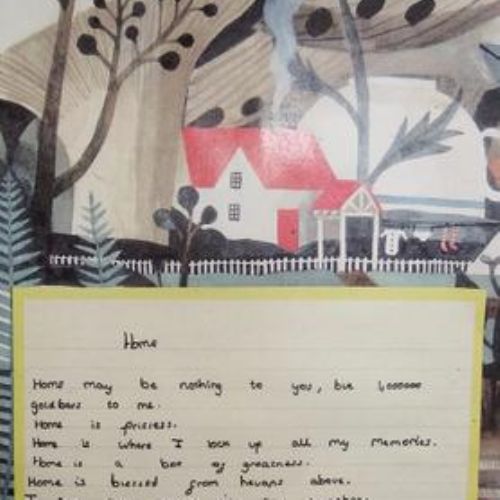 Home
Home may be nothing to you, but 6000000
gold bars to me.
Home is priceless.
Home is where I lock up all my memories.
Home is a box of greatness.
Home is blessed from hevans above.